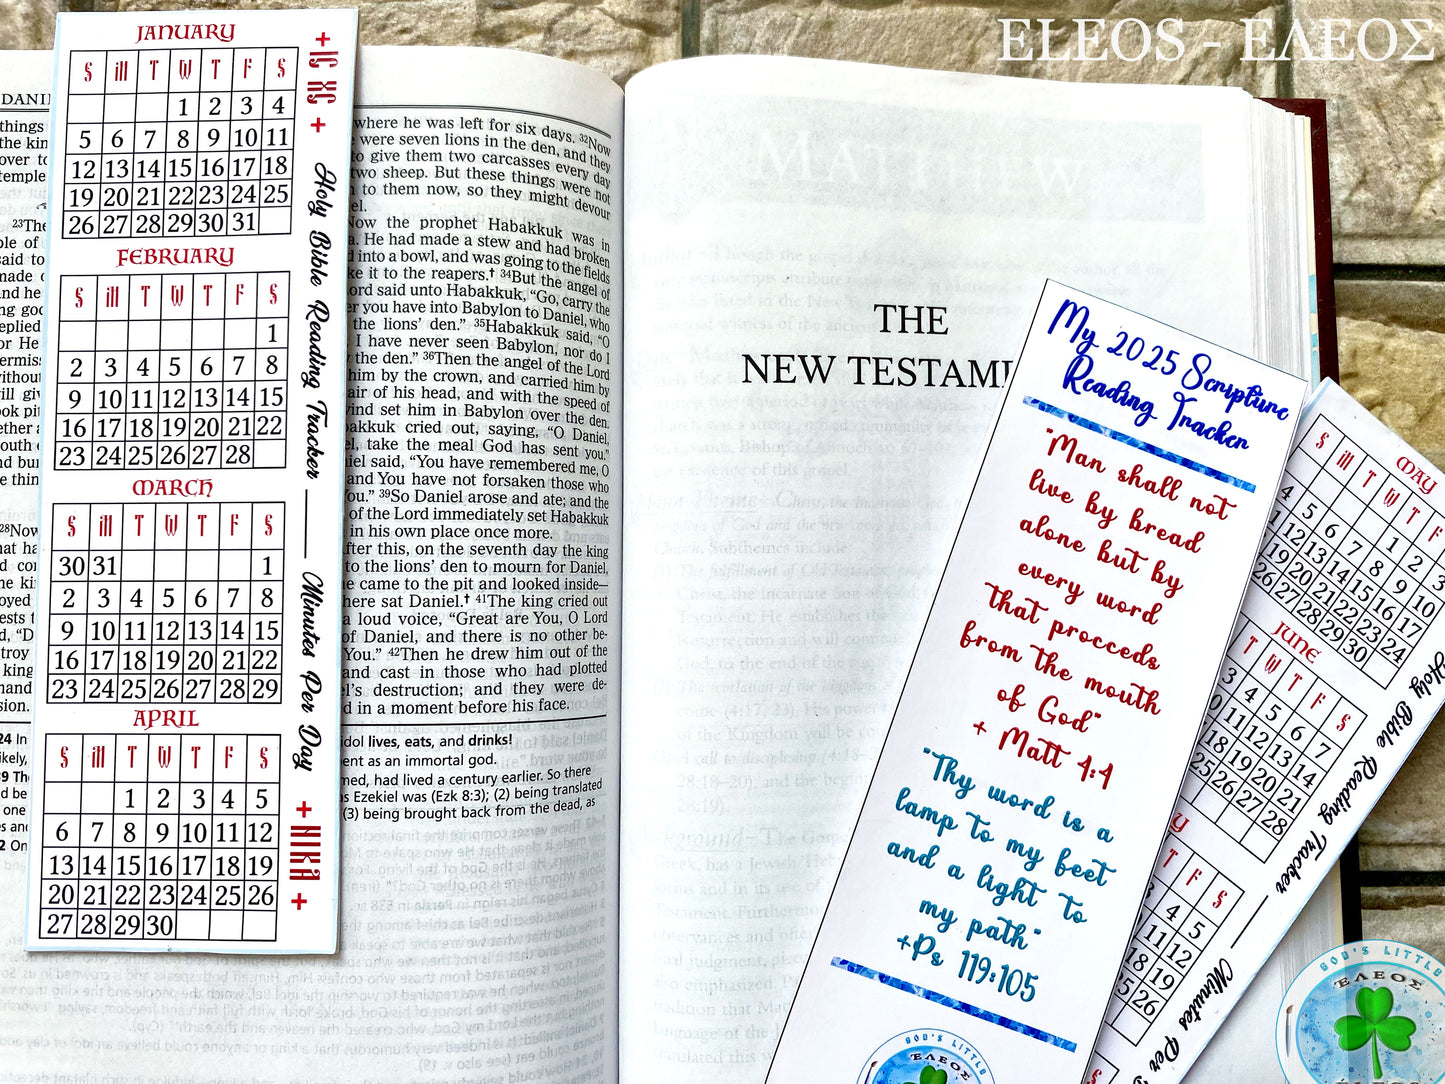 ELEOS - ΕΛΕΟΣ
JANUARY
S M T W T F S
1 2 3 4
5 6 7 8 9 10 11
12 13 14 15 16 17 18
19 20 21 22 23 24 25
26 27 28 29 30 31
FEBRUARY
S M T W T F S
1
2 3 4 5 6 7 8
9 10 11 12 13 14 15
16 17 18 19 20 21 22
23 24 25 26 27 28
MARCH
S M T W T F S
30 31 1
2 3 4 5 6 7 8
9 10 11 12 13 14 15
16 17 18 19 20 21 22
23 24 25 26 27 28 29
APRIL
S M T W T F S
1 2 3 4 5
6 7 8 9 10 11 12
13 14 15 16 17 18 19
20 21 22 23 24 25 26
27 28 29 30
+ IC XC + Holy Bible Reading Tracker ____ Minutes Per Day + NIKA +
DANI
things
the kin
over to
temple
23The
ple of
said to
made
and he
ing god
replied
or He
permiss
without
will giv
took pit
gether
mouth
and bur
the thin
28Now
that ha
d, "D
troy
king
hand
sion.
where he was left for six days. 32Now
were seven lions in the den, and they
to give them two carcasses every day
two sheep. But these things were not
to them now, so they might devour
el.
Now the prophet Habakkuk was in
a. He had made a stew and had broken
into a bowl, and was going to the fields
ke it to the reapers.† 34But the angel of
ord said unto Habakkuk, "Go, carry the
er you have into Babylon to Daniel, who
the lions' den." 35Habakkuk said, "O
I have never seen Babylon, nor do I
the den." 36Then the angel of the Lord
him by the crown, and carried him by
air of his head, and with the speed of
wind set him in Babylon over the den.
bakkuk cried out, saying, "O Daniel,
el, take the meal God has sent you."
iel said, "You have remembered me, O
and You have not forsaken those who
You." 39So Daniel arose and ate; and the
of the Lord immediately set Habakkuk
in his own place once more.
fter this, on the seventh day the king
to the lions' den to mourn for Daniel,
he came to the pit and looked inside—
here sat Daniel.† 41The king cried out
a loud voice, "Great are You, O Lord
of Daniel, and there is no other be-
You." 42Then he drew him out of the
and cast in those who had plotted
el's destruction; and they were de-
d in a moment before his face.
24 In
likely,
39 The
42 On
idol lives, eats, and drinks!
ent as an immortal god.
med, had lived a century earlier. So there
as Ezekiel was (Ezk 8:3); (2) being translated
(3) being brought back from the dead, as
THE
NEW TESTAM
My 2025 Scripture
Reading Tracker
"Man shall not
live by bread
alone but by
every word
that procceds
from the mouth
of God"
+ Matt 4:4
"Thy word is a
lamp to my feet
and a light to
my path"
+Ps 119:105
GOD'S LITTLE
ἜΛΕΟΣ
MAY
S M T W T F
1 2 3
4 5 6 7 8 9 10
12 13 14 15 16 17
19 20 21 22 23 24
26 27 28 29 30
JUNE
T W T F S
3 4 5 6 7
10 11 12 13 14
18 19 20 21
25 26 27 28
Y
T F S
4 5
11 12
18 19
25 26
Holy Bible Reading Tracker ____ Minutes Per
GOD'S LITTLE
ἜΛΕΟΣ